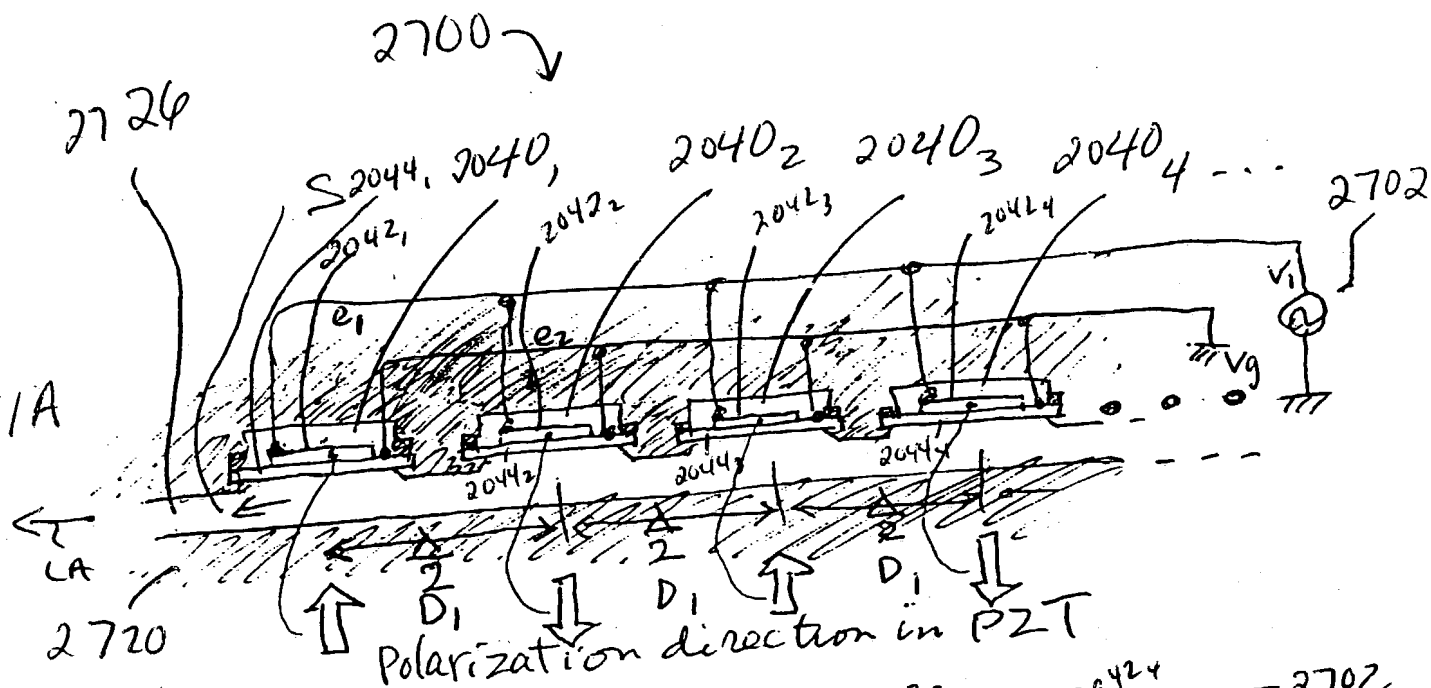 2700
2726
S 2044₁ 2040₁ 2040₂ 2040₃ 2040₄ ...
2702
2042₁ 2042₂ 2042₃ 2042₄
V₁
e₁ e₂
Vg
1A
2044₂ 2044₃ 2044₄
LA
Λ/2 Λ/2 Λ/2
D₁ D₁ D₁
2720
Polarization direction in PZT
2702